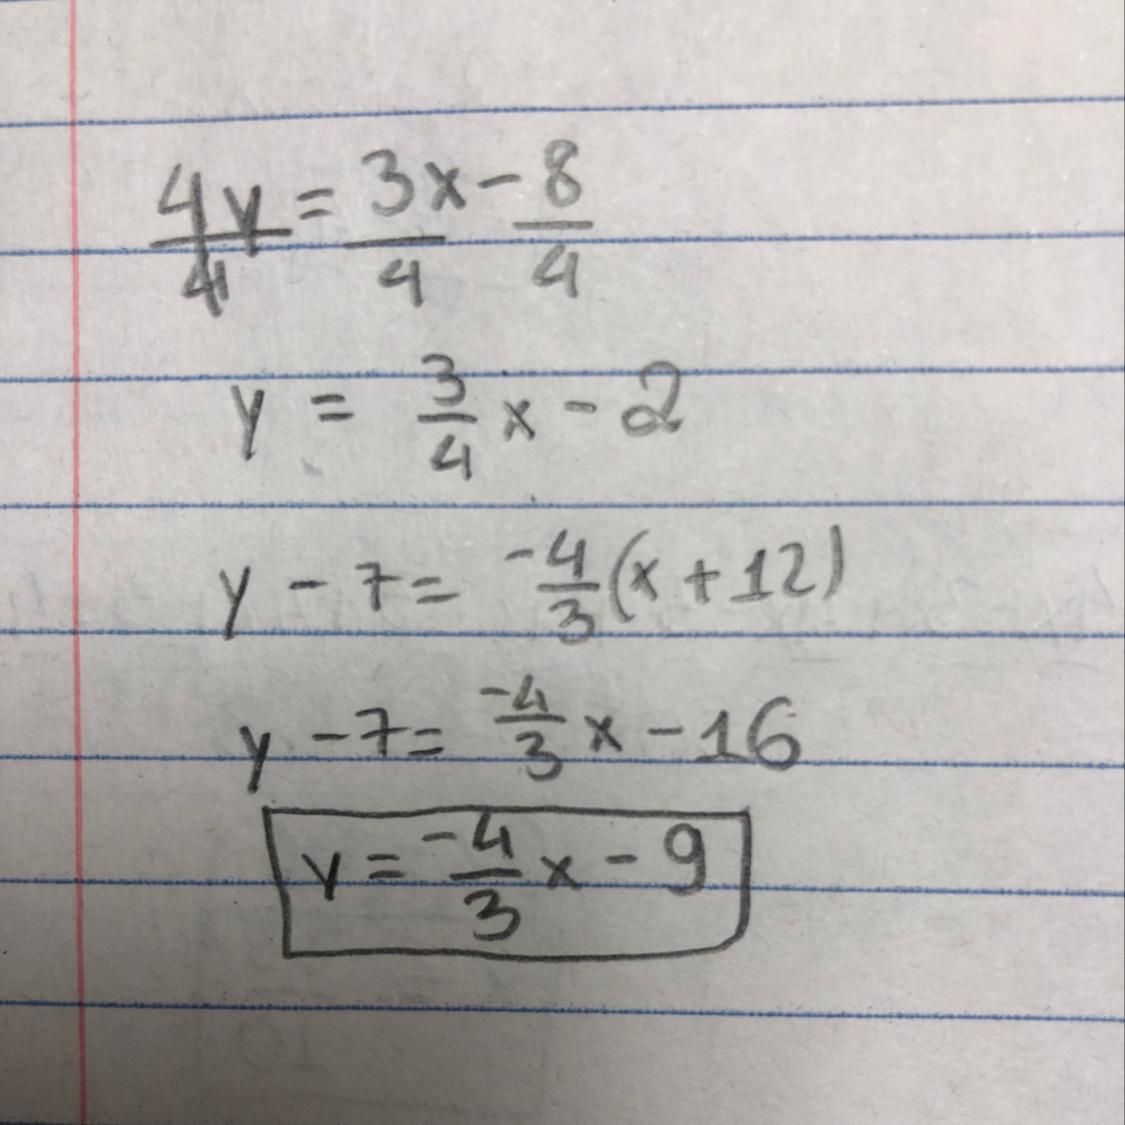 4y/4 = 3x/4 - 8/4
y = 3/4 x - 2
y - 7 = -4/3 (x + 12)
y - 7 = -4/3 x - 16
y = -4/3 x - 9